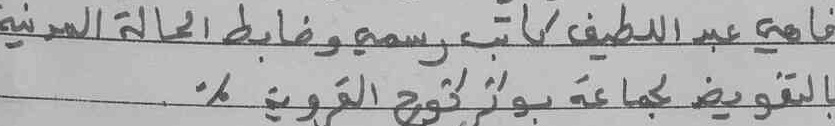 فاهي عبد اللطيف كاتب رسمي وضابط الحالة المدنية
بالتفويض لجماعة بوكركوح القروية ./.